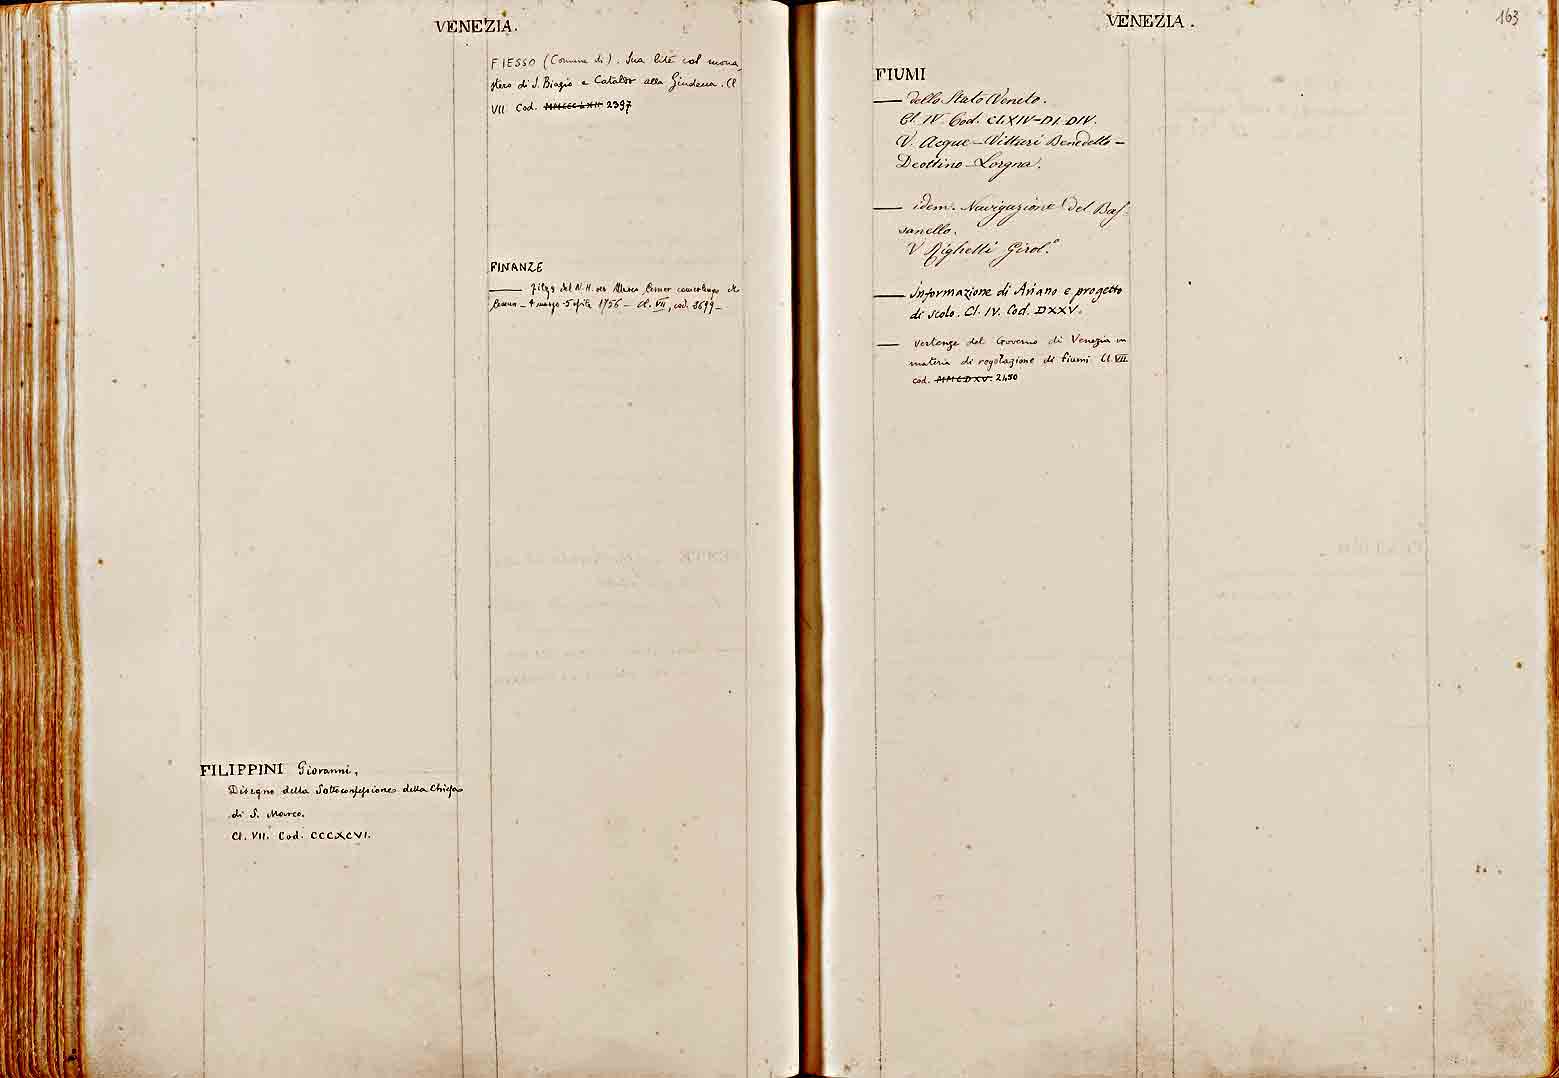 VENEZIA.
FILIPPINI Giovanni,
Disegno della Sottoconfessione della Chiesa
di S. Marco.
Cl. VII. Cod. CCCXCVI.
FIESSO (Comune di). Sua lite col mona
stero di S. Biagio e Cataldo alla Giudecca. Cl
VII Cod. 2397
FINANZE
— del N. H. Corner camerlengo di
— 4 marzo - 5 aprile 1756 — cl. VII, cod. 8699 —
VENEZIA.
163
FIUMI
— dello Stato Veneto.
Cl. IV. Cod. CLXIV-DI. DIV.
V. Acque — Vitturi Benedetto —
Deottino — Lorgna.
— idem. Navigazione del Bas-
sanello.
V Righetti Girol.º
— Informazione di Ariano e progetto
di scolo. Cl. IV. Cod. DXXV.
— Vertenze del Governo di Venezia in
materia di regolazione di fiumi Cl. VII.
cod. MMCDXV. 2450